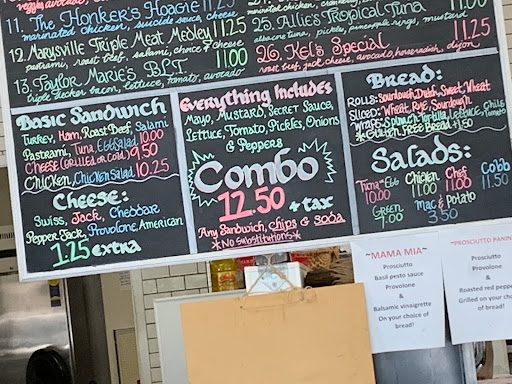 veggies, avocado,
11. The Honker's Hoagie 11.25
marinated chicken, suicide sauce, cheese
12. Marysville Triple Meat Medley 11.25
pastrami, roast beef, salami, choice of cheese
13. Taylor Marie's BLT 11.00
triple decker bacon, lettuce, tomato, avocado
25. Allie's Tropical Tuna 11.25
albacore tuna, pickles, pineapple rings, mustard
26. Kel's Special 11.00
roast beef, jack cheese, avocado, horseradish, dijon
Basic Sandwich
Turkey, Ham, Roast Beef, Salami
Pastrami, Tuna, Egg Salad 10.00
Cheese (Grilled or Cold) 9.50
Chicken, Chicken Salad 10.25
Cheese:
Swiss, Jack, Cheddar
Pepper Jack, Provolone, American
1.25 extra
Everything Includes
Mayo, Mustard, Secret Sauce,
Lettuce, Tomato, Pickles, Onions
& Peppers
Combo
12.50 + tax
Any Sandwich, chips & soda
*No Substitutions*
Bread:
Rolls: Sourdough, Dutch, Sweet, Wheat
Sliced: Wheat, Rye, Sourdough
Wraps: Spinach, Tortilla, Lettuce, Chile & Tomato
*Gluten Free Bread +1.50
Salads:
Tuna or Egg 10.00
Chicken 11.00
Chef 11.00
Cobb 11.50
Green 7.00
Mac & Potato 3.50
~MAMA MIA~
Prosciutto
Basil pesto sauce
Provolone
&
Balsamic vinaigrette
On your choice of
bread!
~PROSCIUTTO PANINI
Prosciutto
Provolone
&
Roasted red pepper
Grilled on your choice
of bread!